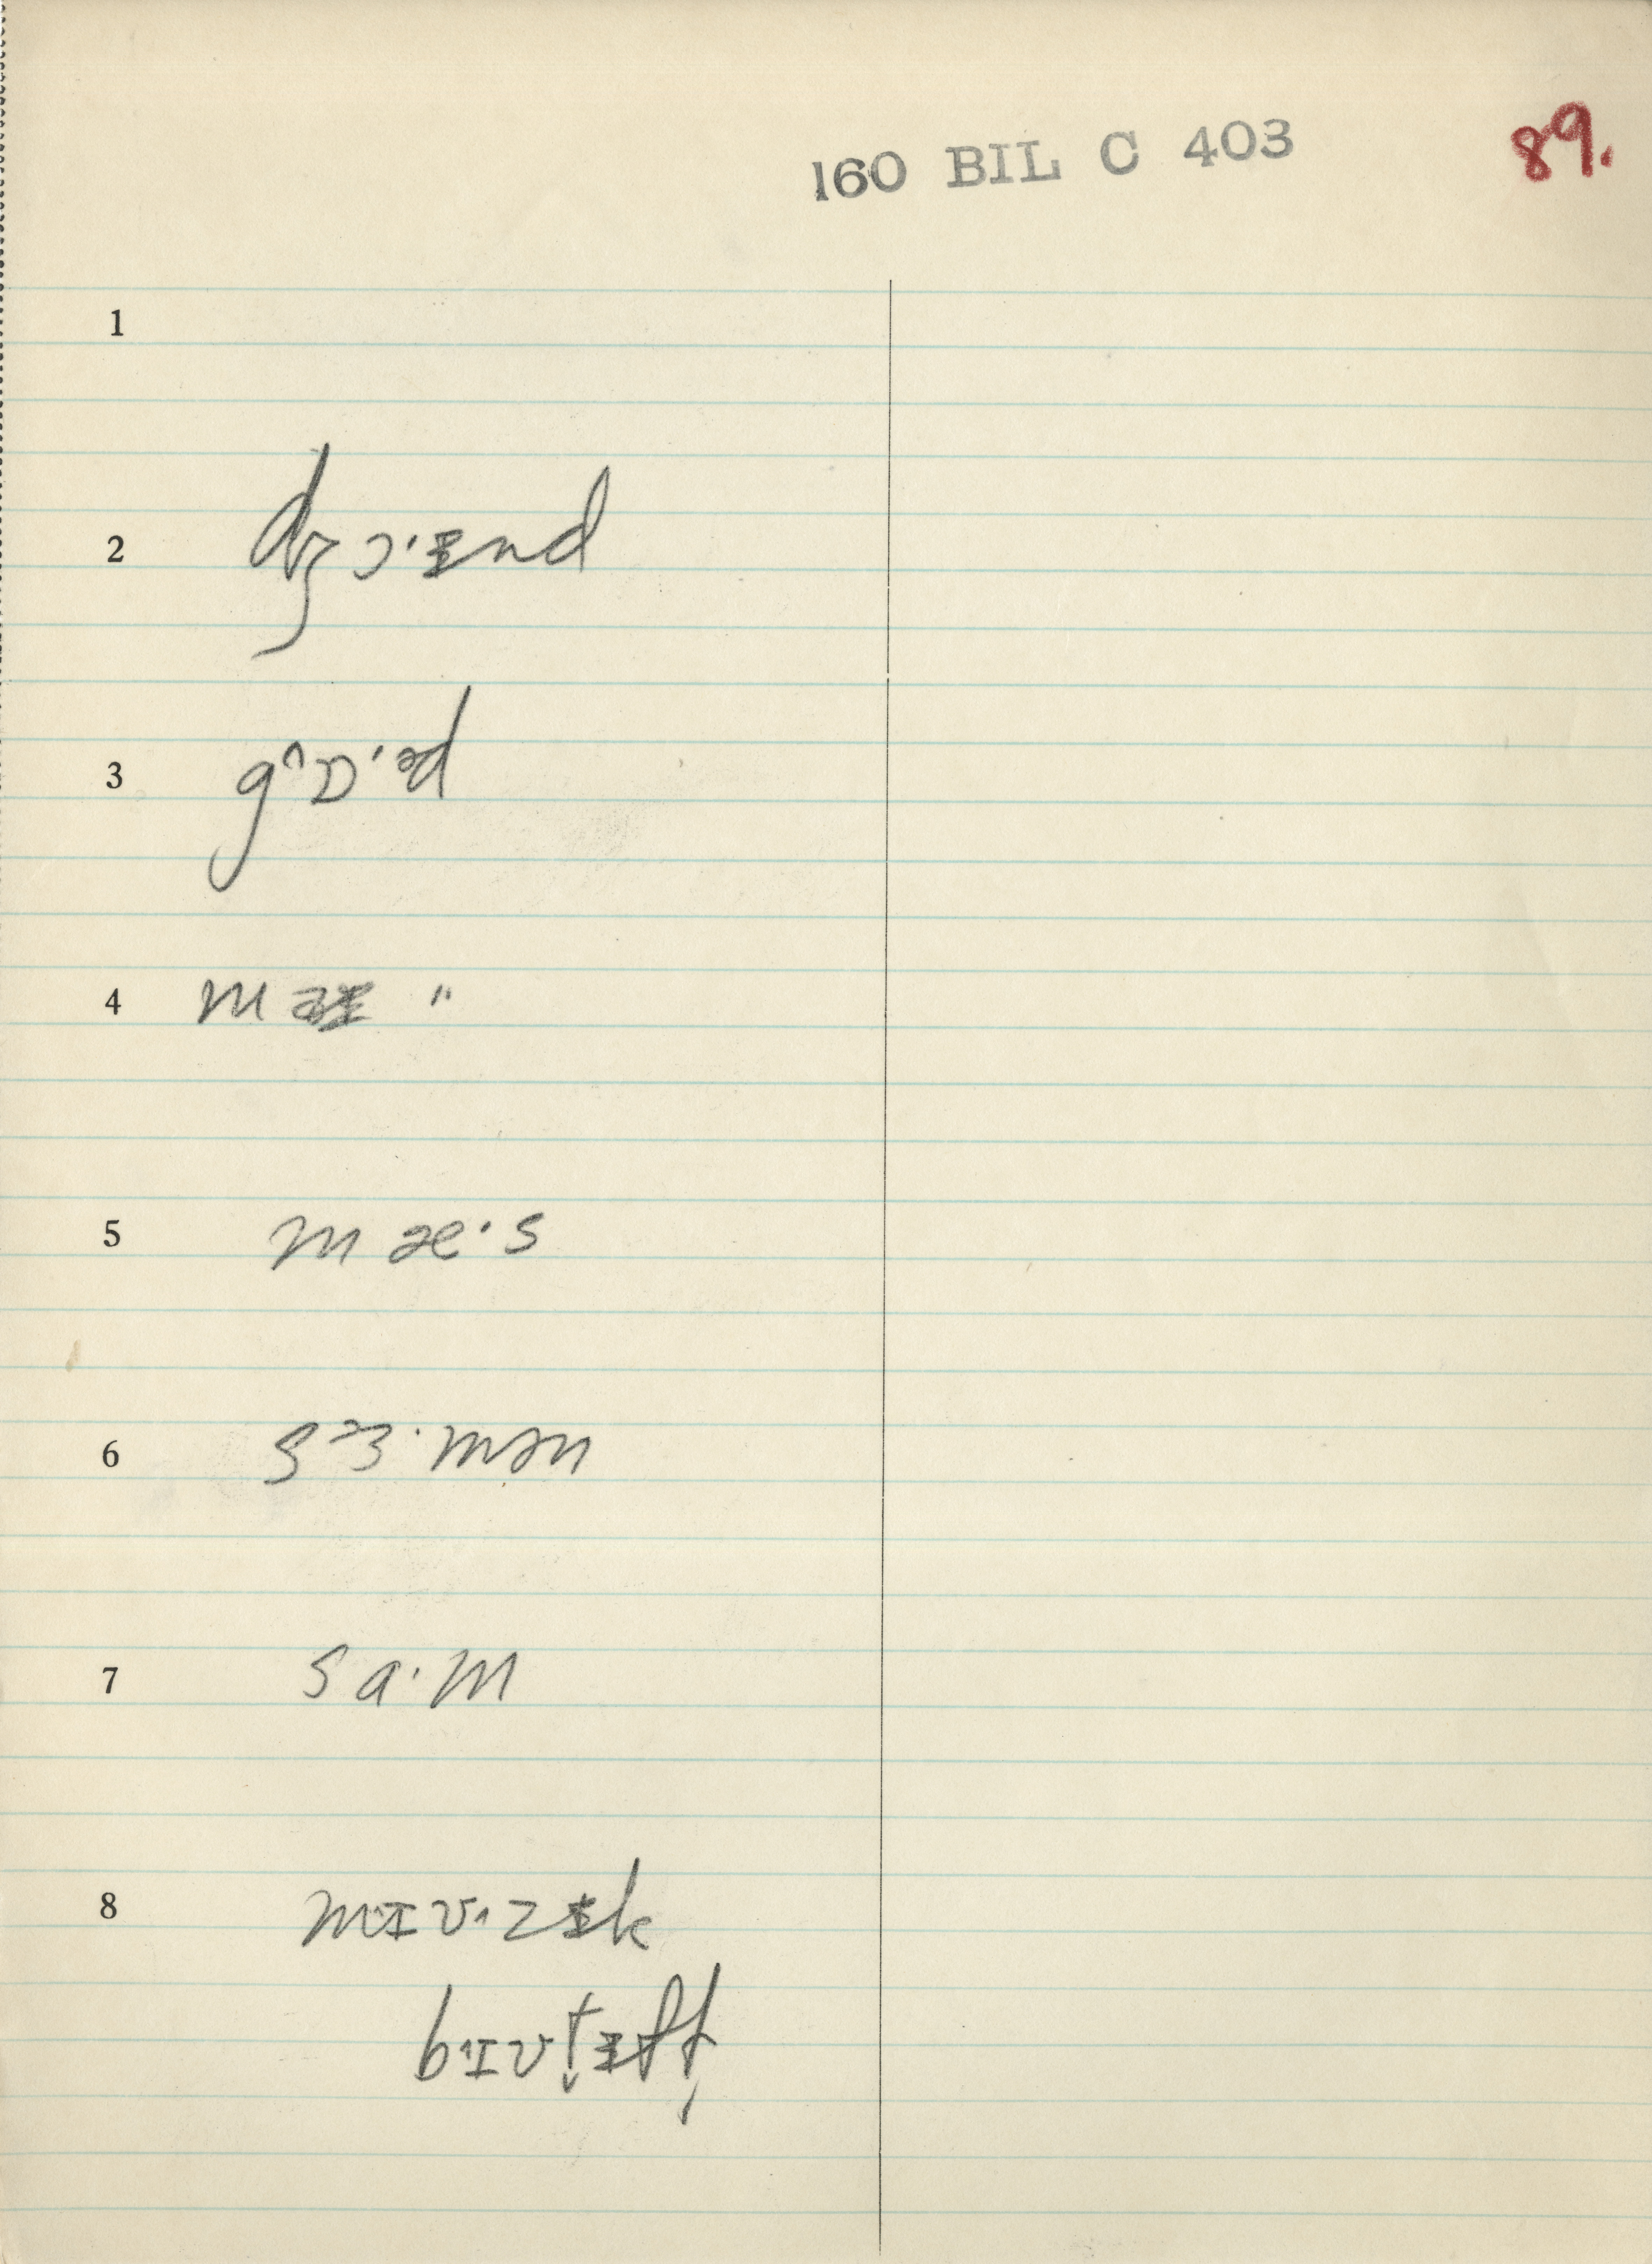 160 BIL C 403
89.
1
2 dʒɔ·ɪnd
3 g^ɒ·əd
4 m "
5 mæ·s
6 sɜ·mən
7 sa·m
8 mɪʊ·zɨk
bɪʊt̬ɨf